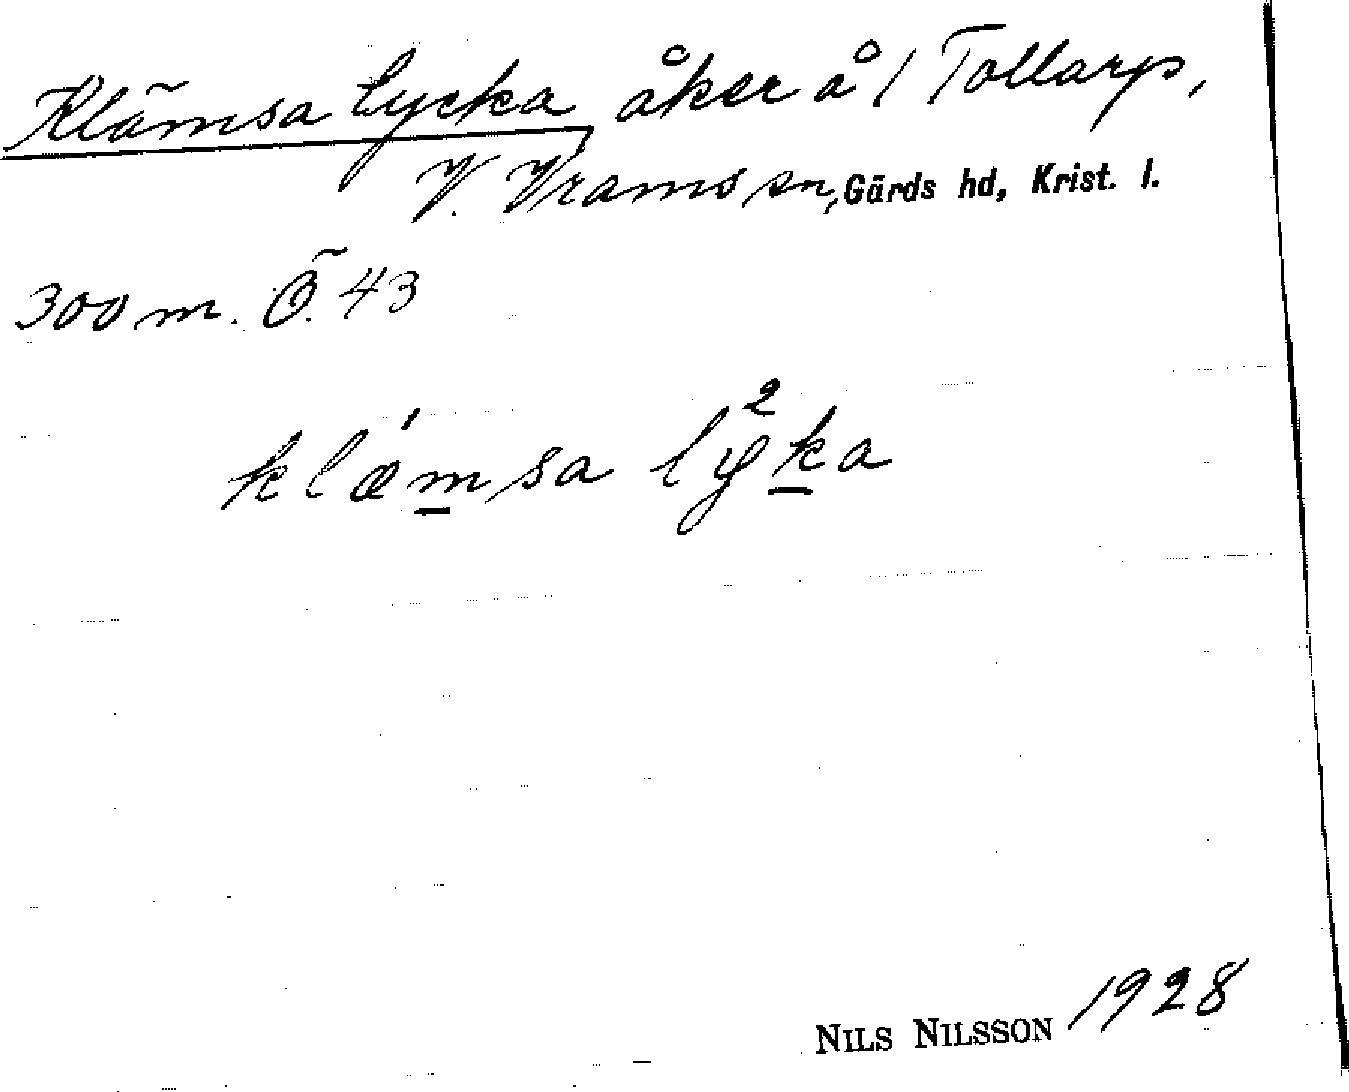 Klämsa lycka åker å 1 Tollarp,
V. Vrams sn, Gärds hd, Krist. l.
300 m. Ö. 43
klæ´msa ly²ka
NILS NILSSON 1928